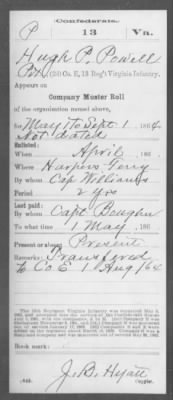 Confederate.
P 13 Va.
Hugh P. Powell
Pvt, (2d) Co. E, 13 Reg't Virginia Infantry.
Appears on
Company Muster Roll
of the organization named above,
for May 1 to Sept 1, 1864
Not dated
Enlisted:
When April, 186
Where Harpers Ferry
By whom Cap Williams
Period 2 yrs
Last paid:
By whom Capt
To what time 1 May, 186
Present or absent Present
Remarks: Transfered
to Co E 1 Aug 64
Book mark:
J. B. Hyatt
Copyist.